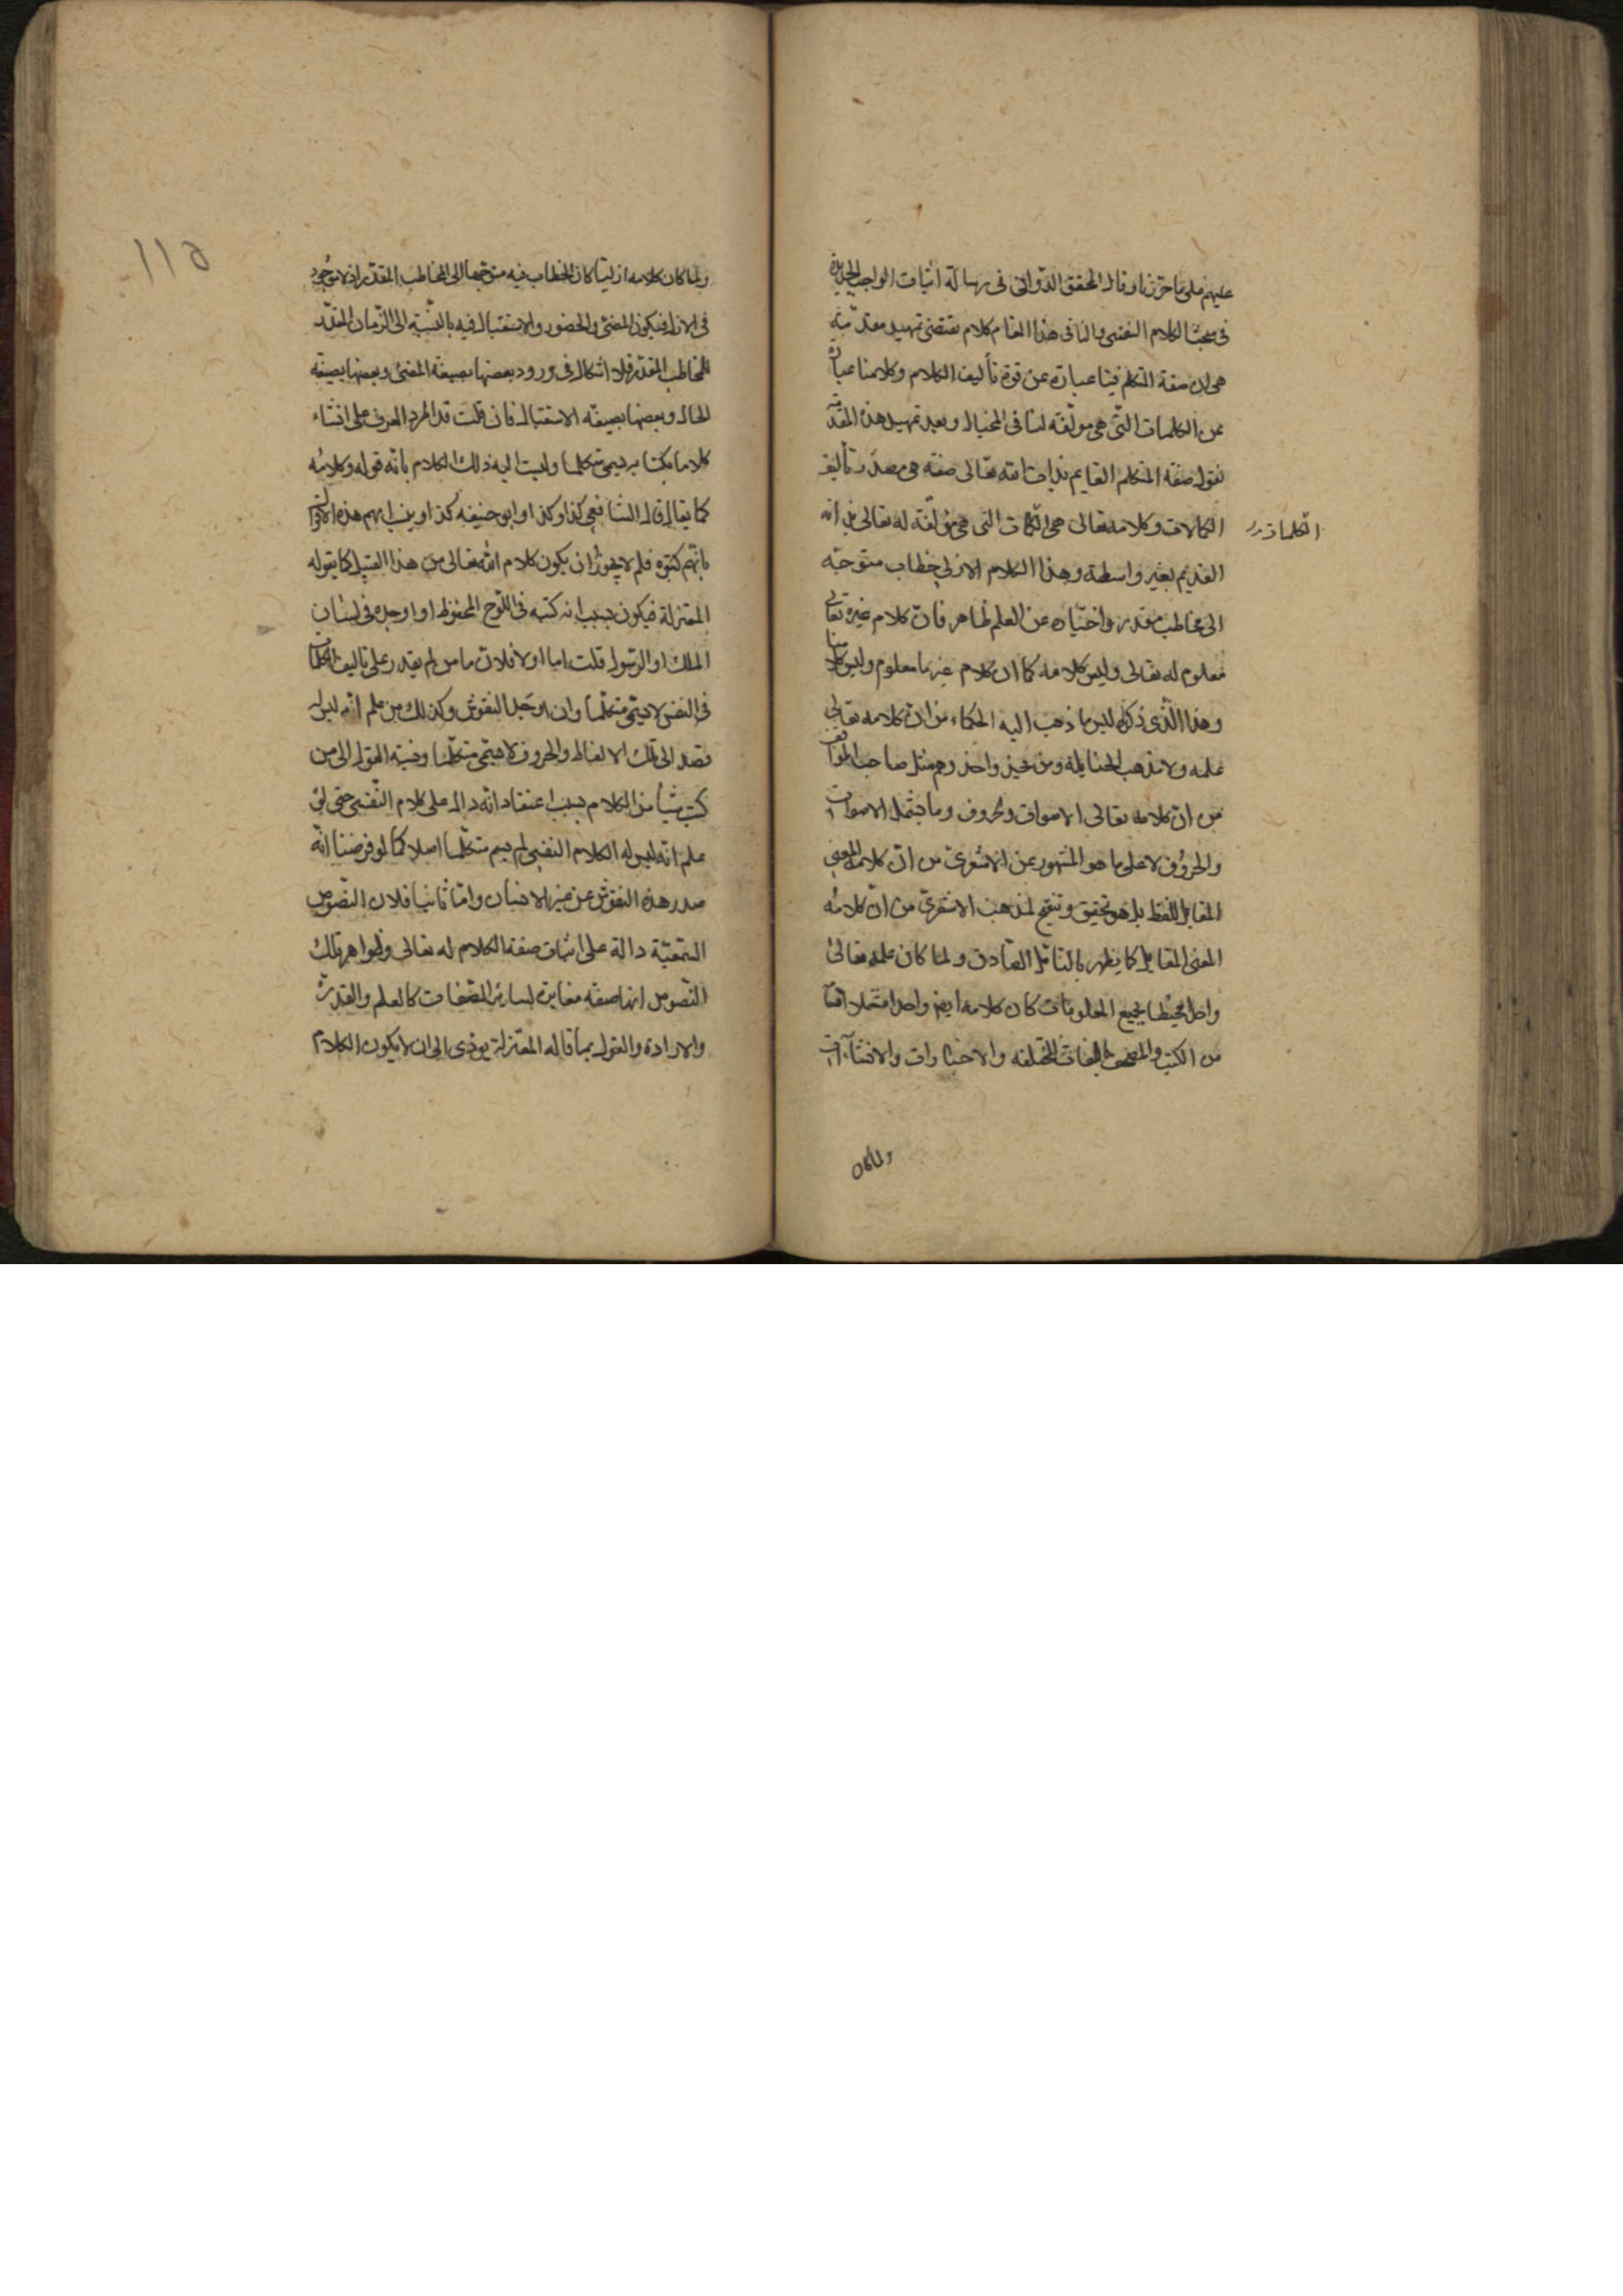 عليهم على ما حررنا وقال المحقق الدواني في رسالة اثبات الواجب الجديدة
في مبحث الكلام النفسي ولنا في هذا المقام كلام يقتضي تمهيد مقدمة
هي ان صفة التكلم فينا عبارة عن قوة تأليف الكلام وكلامنا عبارة
عن الكلمات التي هي مؤلفة لنا في الخيال وبعد تمهيد هذه المقدمة
نقول صفة التكلم القايم بذات الله تعالى صفة هي مصدر تأليف
الكمالات وكلامه تعالى هي الكلمات التي هي مؤلفة له تعالى بذاته
الكلمات
القديم بغير واسطة وهذا الكلام الازلي خطاب متوجه
الى مخاطب مقدر وامتيازه عن العلم ظاهر فان كلام غيره تعالى
معلوم له تعالى وليس كلامه كما ان كلام غيرنا معلوم وليس كلامنا
وهذا الذي ذكرناه ليس ما ذهب اليه الحكماء من ان كلامه تعالى
علمه ولا مذهب الحنابلة ومن يحذو حذوهم مثل صاحب المواقف
من ان كلامه تعالى الاصوات والحروف وما يشمل الاصوات
والحروف لا على ما هو المشهور عن الاشعري من ان كلامه المعنى
المقابل للفظ بل هو تحقيق وتنقيح لمذهب الاشعري من ان كلامه
المعنى المقابل كما يظهر بالتأمل الصادق ولما كان علمه تعالى
واحدا محيطا بجميع المعلومات كان كلامه ايضا واحدا مشتملا
من الكتب والصحف باللغات المختلفة والاخبارات والانشاآت
ولما كان
115
ولما كان كلامه ازليا كان الخطاب فيه متوجها الى المخاطب المقدر اذ لا موجود
في الازل فيكون المضي والحضور والاستقبال فيه بالنسبة الى الزمان المقدر
للمخاطب المقدر فلا اشكال في ورود بعضها بصيغة المضي وبعضها بصيغة
الحال وبعضها بصيغة الاستقبال فان قلت قد اطرد العرف على انشاء
كلاما بكتابه يسمى متكلما وينسب اليه ذلك الكلام بانه قوله وكلامه
كما يقال قال الشافعي كذا وكذا وابو حنيفة كذا وينسب اليهم هذه الاقوال
بانهم كتبوه فلم لا يجوز ان يكون كلام الله تعالى من هذا القبيل كما يقوله
المعتزلة فيكون بسبب انه كتبه في اللوح المحفوظ او اوجده في لسان
الملك او الرسول قلت اما اولا فلان ما من لم يقدر على تأليف الكلمات
في النفس لا يسمى متكلما وان اوجد النقوش وكذلك من علم انه ليس له
قصد الى تلك الالفاظ والحروف لا يسمى متكلما ونسبة القول الى من
كتب شيأ من الكلام بسبب اعتقاد انه دال على كلام النفسي حتى لو
علم انه ليس له الكلام النفسي لم يسم متكلما اصلا كما لو فرضنا انه
صدر هذه النقوش عن غير الانسان واما ثانيا فلان النصوص
السمعية دالة على اثبات صفة الكلام له تعالى وظواهر تلك
النصوص انها صفة مغايرة لساير الصفات كالعلم والقدرة
والارادة والقول بما قاله المعتزلة يؤدى الى ان لا يكون الكلام